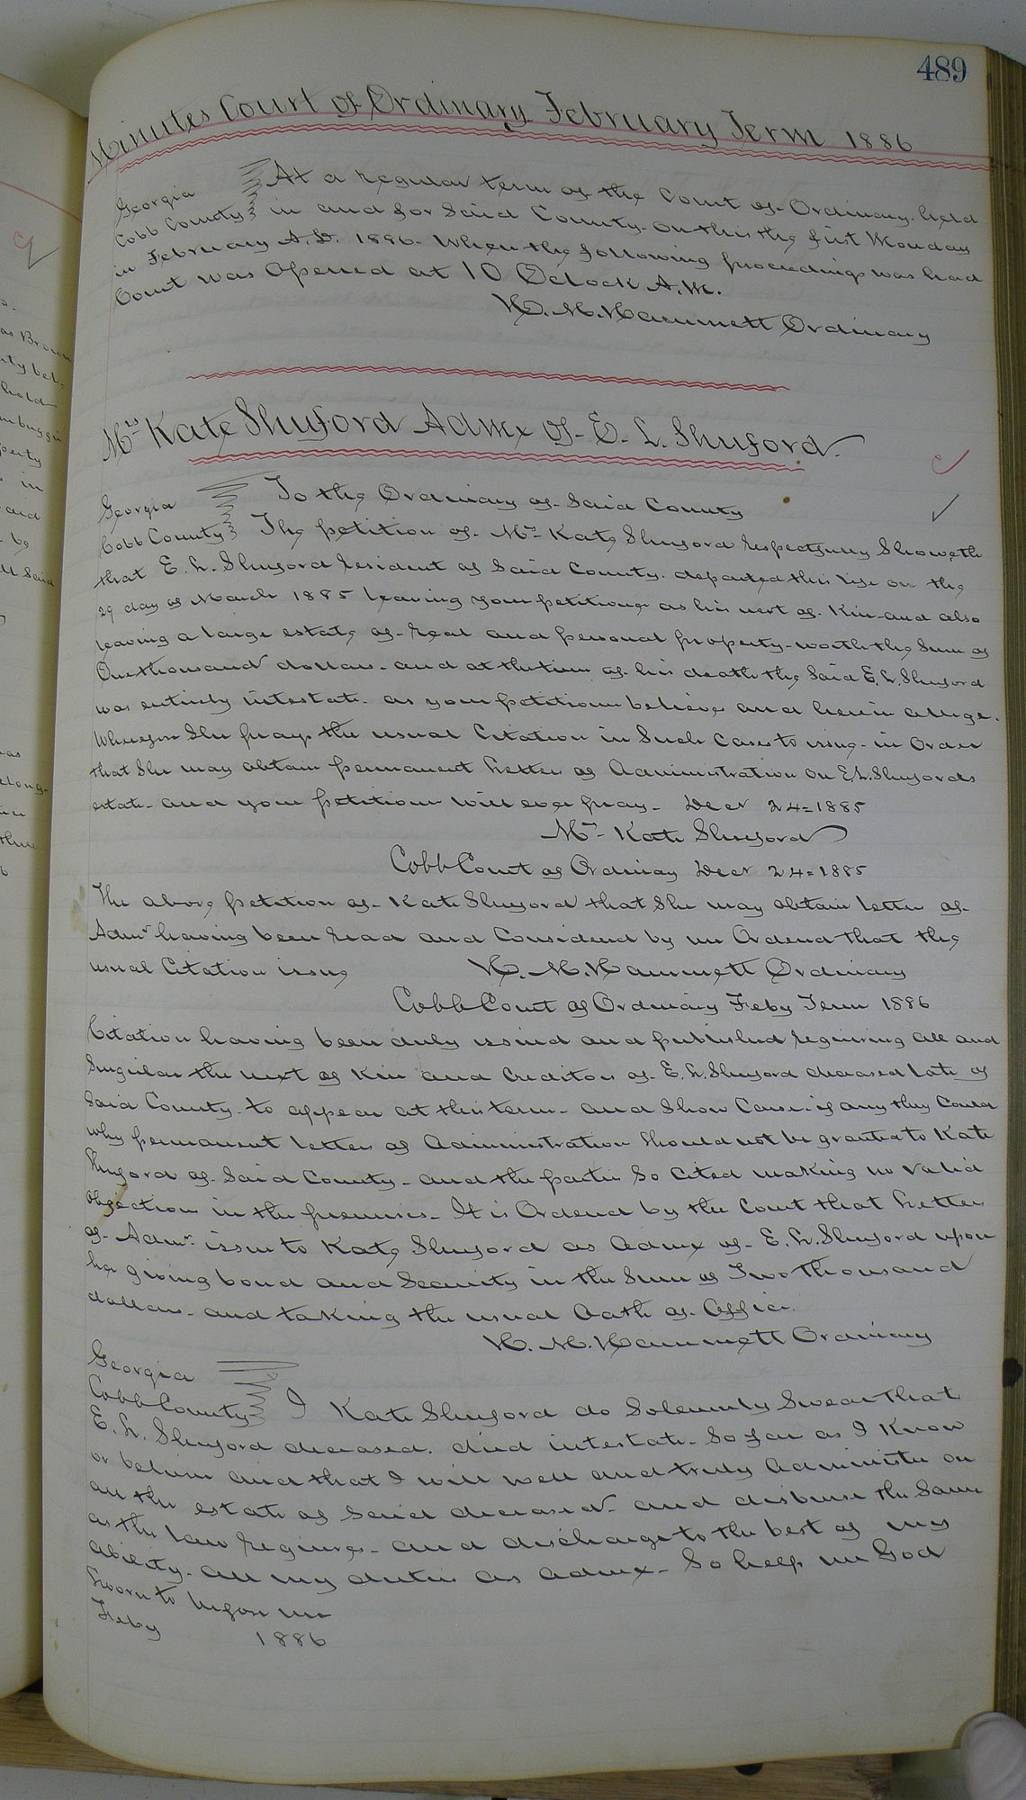 489
Minutes Court of Ordinary February Term 1886
Georgia At a regular term of the Court of Ordinary held
Cobb County in and for Said County on this the first Monday
in February A.D. 1886. When the following proceedings was had
Court was Opened at 10 Oclock A.M.
H. M. Hammett Ordinary
Mrs Kate Shuford Admx of E. L. Shuford
Georgia To the Ordinary of Said County
Cobb County The petition of Mrs Kate Shuford respectfully Showeth
that E. L. Shuford resident of Said County departed this life on the
29 day of March 1885 leaving your petitioner as his next of Kin and also
leaving a large estate of real and personal property worth the Sum of
One thousand dollars and at the time of his death the Said E. L. Shuford
was entirely intestate as your petitioner believes and herein alleges.
Wherefore She prays the usual Citation in Such Cases to issue in Order
that She may obtain permanent Letters of Administration on E. L. Shufords
estate and your petitioner will ever pray Decr 24=1885
Mrs Kate Shuford
Cobb Court of Ordinary Decr 24=1885
The above petition of Kate Shuford that She may obtain letters of
Admr having been read and Considered by me Ordered that the
usual Citation issue H. M. Hammett Ordinary
Cobb Court of Ordinary Feby Term 1886
Citation having been duly issued and published requiring all and
Singular the next of Kin and Creditors of E. L. Shuford deceased late of
Said County to appear at this term and Show Cause if any they Could
why permanent letters of Administration Should not be granted to Kate
Shuford of Said County and the parties So Cited making no valid
objections in the premises It is Ordered by the Court that Letters
of Admr. issue to Kate Shuford as Admx of E. L. Shuford upon
her giving bond and Security in the Sum of Two thousand
dollars and taking the usual Oath of Office.
H. M. Hammett Ordinary
Georgia
Cobb County I Kate Shuford do Solemnly Swear that
E. L. Shuford deceased. died intestate So far as I Know
or believe and that I will well and truly Administer on
all the estate of Said deceased and disburse the Same
as the law requires and discharge to the best of my
ability all my duties as admx So help me God
Sworn to before me
Feby 1886